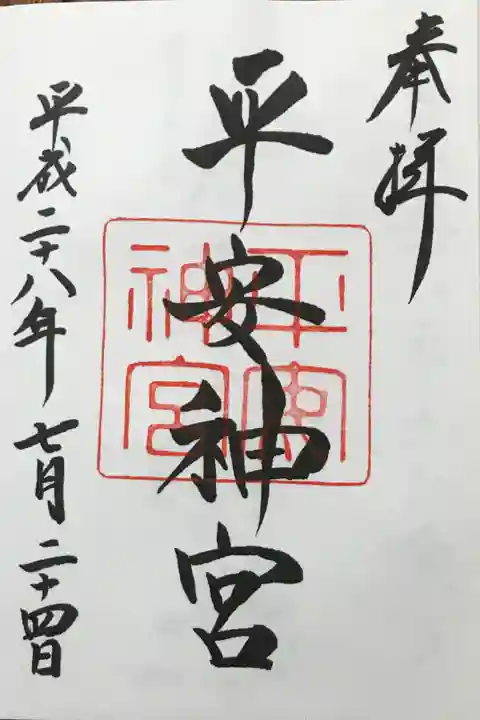 奉拝
平安神宮
平安神宮
平成二十八年七月二十四日